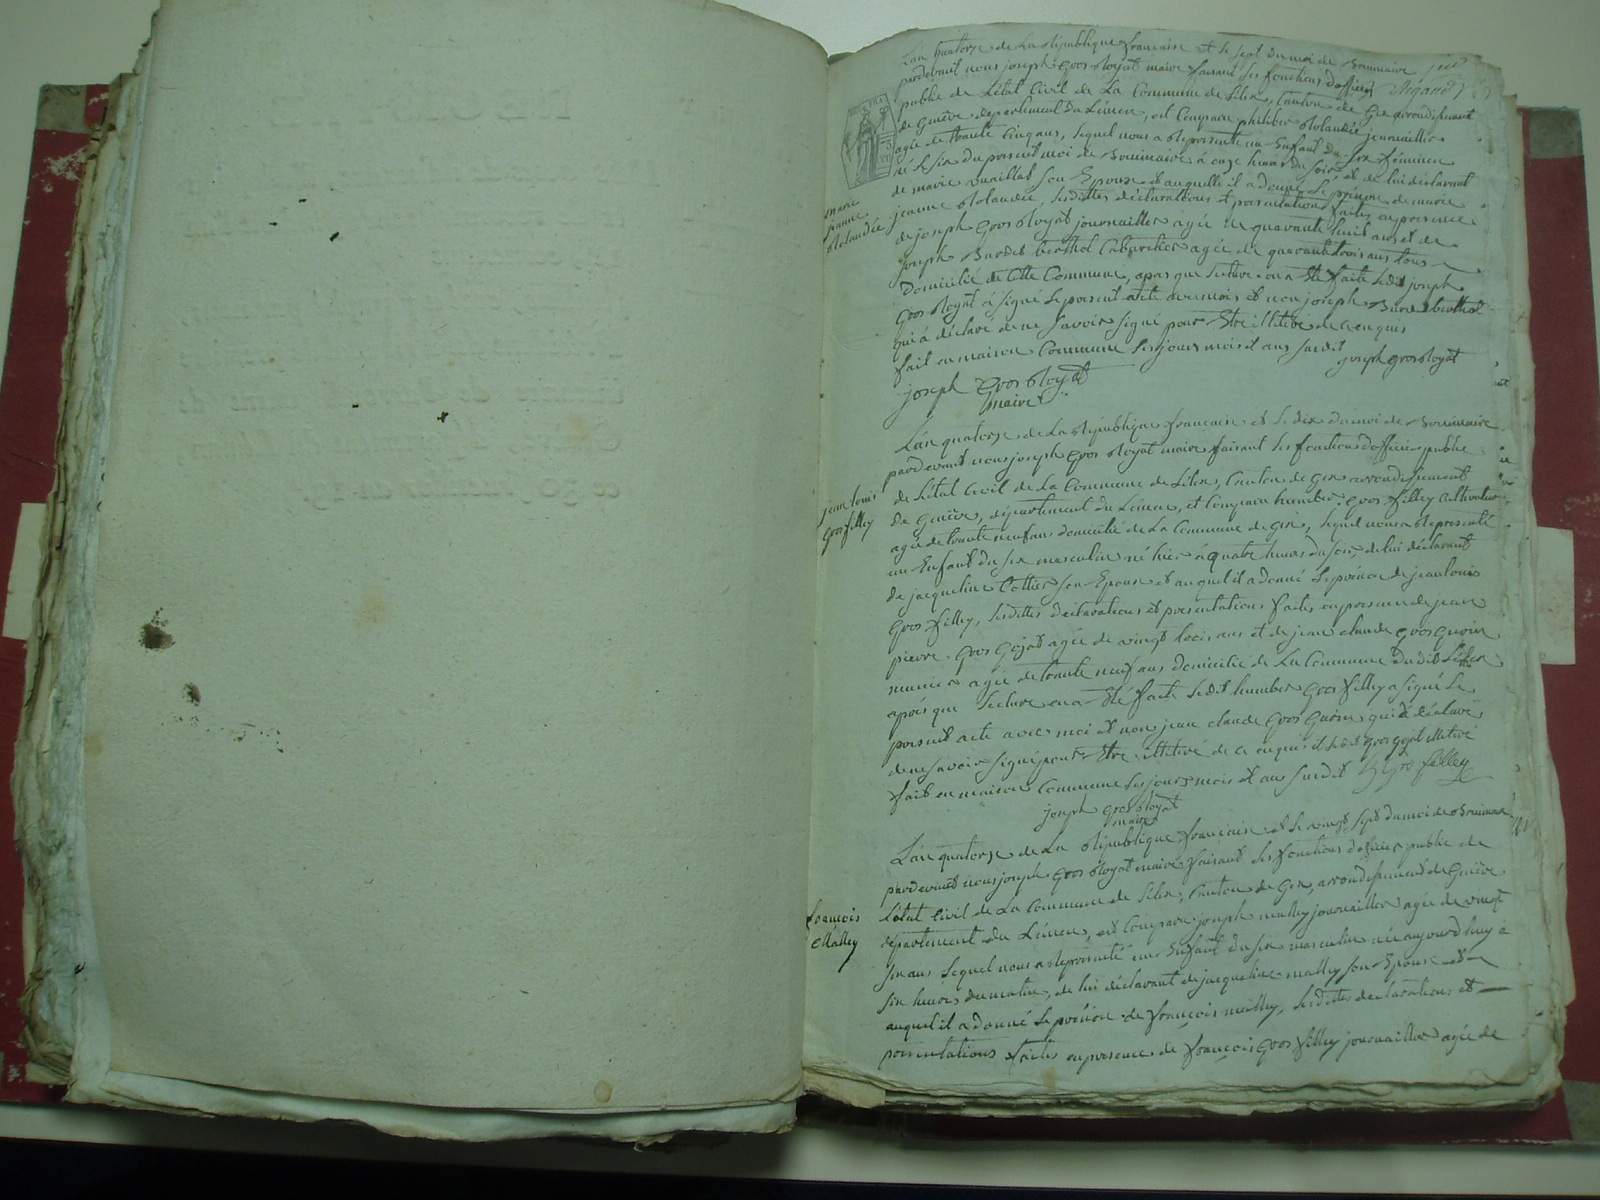 L'an quatorze de La République francaise et le sept du moi de Brumaire
pardevant nous joseph gros Royat maire faisant les fonctions d'officier
public de L'état Civil de La Commune de Lélex, Canton de Gex arrondisement
de Genève departement du Léman, est Comparu philiber Rolandée journaillier
agée de trante cinq ans, lequel nous a Représenté un Enfant du sex féminin
né le six du présent moi de Brumaire à onze heure du soir, de lui déclarant
de marie son Epouse et auquelle il a donné le prénom de marie
jeanne Rolandée, lesdittes déclarations et présentations faites en présence
marie
jeanne
Rolandée
de joseph Gros Royat journaillier agée de quarante huit ans et de
joseph Burdet berthod Cabaretier agée de quarante trois ans tous
domicilié de Cette Commune, apres que lecture en a Eté faite ledit joseph
gros Royat à signé le present acte avec moi et non joseph Burdet berthod
qui à déclaré de ne savoir signé pour Etre illitéré de ce enquis
fait en maison Commune les jours mois et ans susdit
joseph gros Royat
joseph Gros Royat
maire
L'an quatorze de La République francaise et le dix du moi de Brumaire
pardevant nous joseph gros Royat maire faisant les fonctions d'officier public
de L'état Civil de La Commune de Lélex, Canton de Gex arrondisement
jean louis
gros filley
de Genève, département du Léman, est Comparu humber gros filley Cultivateur
agée de trante neuf ans domicilié de La Commune de Gex, lequel nous a Représenté
un Enfant du sex masculin né hier à quatre heures du soir, de lui déclarant
de jacqueline Cottier son Epouse et auquel il a donné le prénom de jean louis
gros filley, lesdittes déclarations et présentations faites en présence de jean
pierre gros gojat agée de vingt trois ans et de jean claude gros gurin
munier agée de trante neuf ans domicilié de La Commune du dit Lélex
après que lecture en a Eté faite ledit humber gros filley a signé le
présent acte avec moi et non jean claude gros gurin qui à déclaré
de ne savoir signé pour Etre illitéré de ce enquis et ledit gros gojat illitéré
fait en maison Commune les jours mois et ans susdit h gros filley
joseph gros Royat
maire
L'an quatorze de La République francaise et le vingt sept du moi de Brumaire
pardevant nous joseph gros Royat maire faisant les fonctions d'officier public de
L'état Civil de La Commune de Lélex, Canton de Gex, arrondisement de Genève
françois
Malley
département du Léman, est Comparu joseph malley journaillier agée de vingt
six ans lequel nous a Représenté un Enfant du sex masculin né aujourd'huy à
six heures du matin, de lui déclarant de jacqueline malley son Epouse et
auquel il a donné le prénom de françois malley, lesdittes declarations et
présentations faites en présence de françois Gros filley journaillier agée de